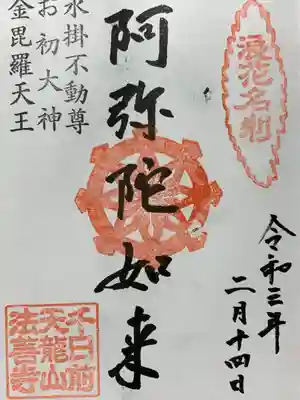 浪花名刹
令和三年
二月十四日
阿弥陀如来
水掛不動尊
お初大神
金毘羅天王
水日前
天龍山
法善寺